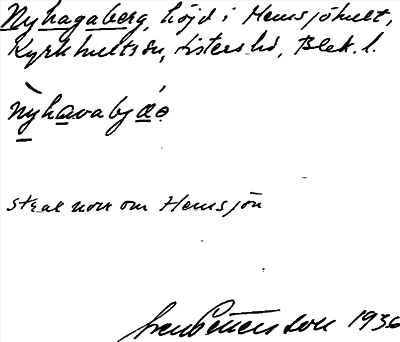 Nyhagaberg, höjd i Hemsjöhult,
Kyrkhults sn, Listers hd, Blek. l.
Strax norr om Hemsjön
Sven Pettersson 1936